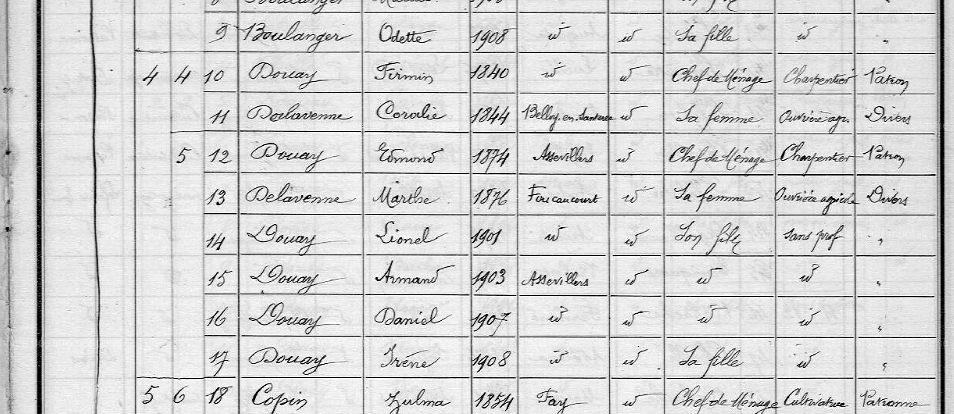 9 Boulanger Odette 1908 id id Sa fille id "
4 4 10 Douay Firmin 1840 id id Chef de Ménage Charpentier Patron
11 Delavenne Coralie 1844 Belloy-en-Santerre id Sa femme Ouvrière agr. Divers
5 12 Douay Edmond 1874 Assevillers id Chef de Ménage Charpentier Patron
13 Delavenne Marthe 1876 Foucaucourt id Sa femme Ouvrière agricole Divers
14 Douay Lionel 1901 id id Son fils sans prof "
15 Douay Armand 1903 Assevillers id id id "
16 Douay Daniel 1907 id id id id "
17 Douay Irène 1908 id id Sa fille id "
5 6 18 Copin Zulma 1854 Fay id Chef de Ménage Cultivatrice Patronne